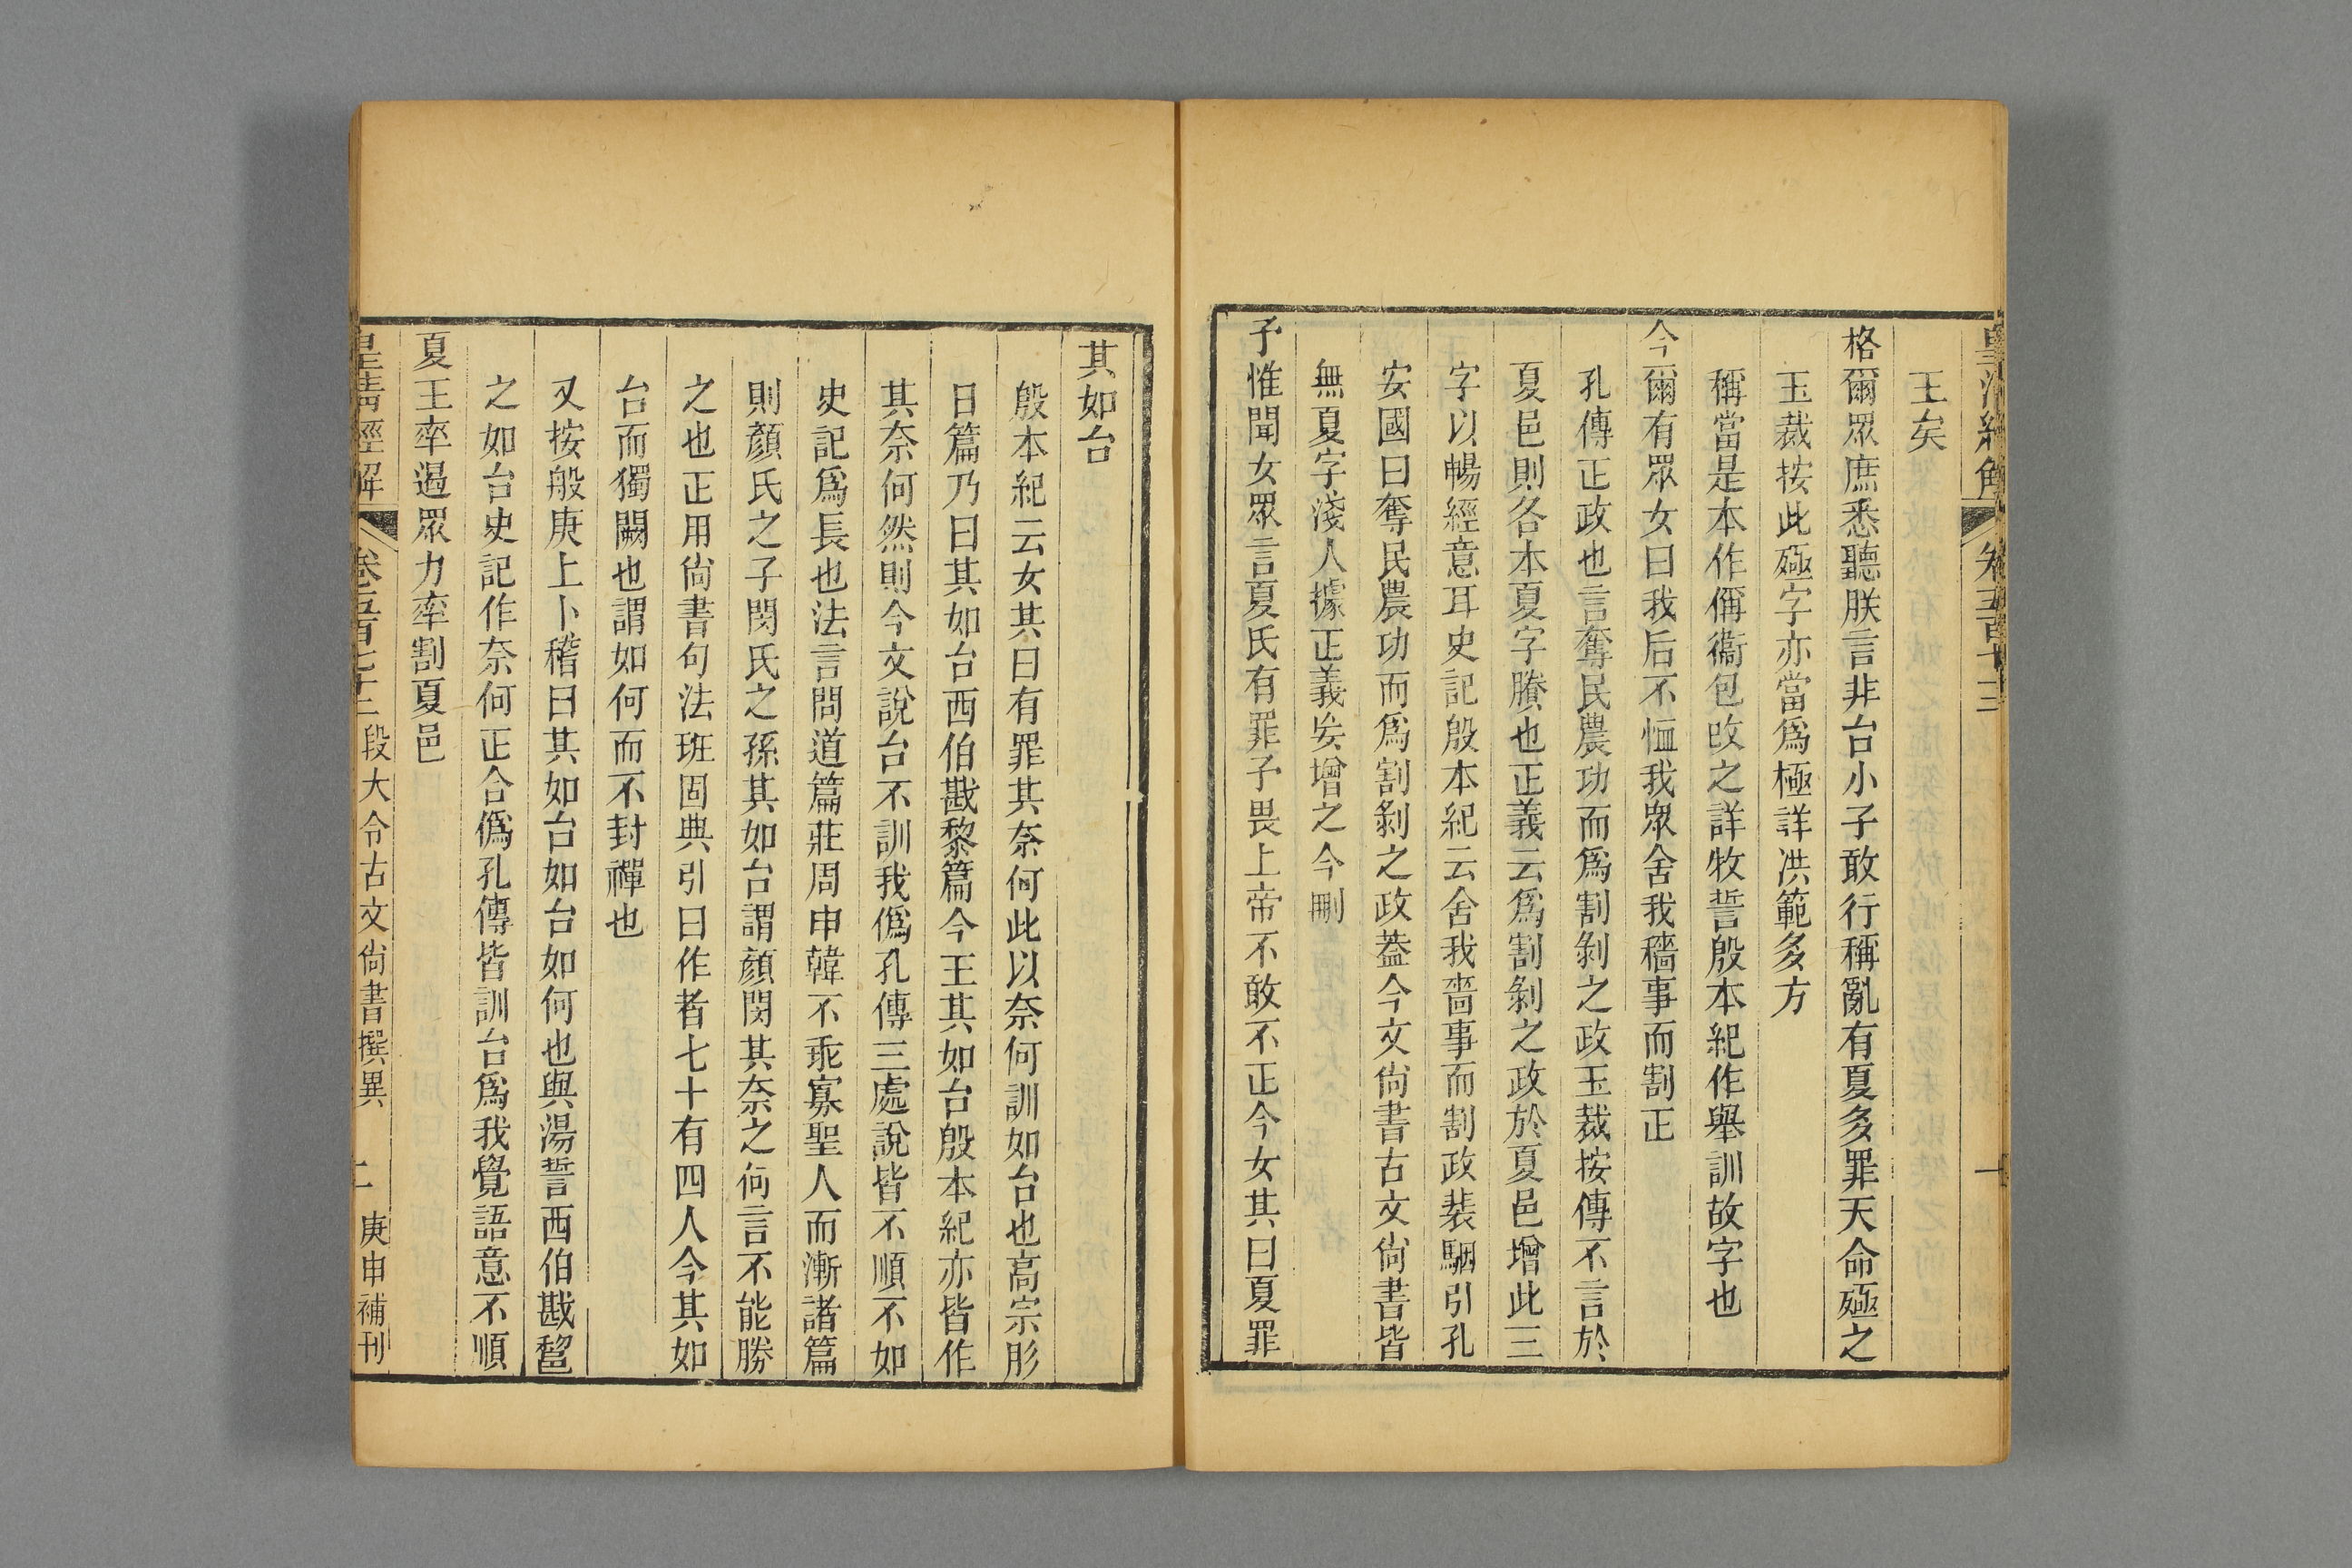 皇清經解 卷五百七十三 一
王矣
格爾眾庶悉聽朕言非台小子敢行稱亂有夏多罪天命殛之
玉裁按此殛字亦當爲極詳洪範多方
稱當是本作偁衞包改之詳牧誓殷本紀作舉訓故字也
今爾有眾女曰我后不恤我眾舍我穡事而割正
孔傳正政也言奪民農功而爲割剝之政玉裁按傳不言於
夏邑則各本夏字賸也正義云爲割剝之政於夏邑增此三
字以暢經意耳史記殷本紀云舍我嗇事而割政裴駰引孔
安國曰奪民農功而爲割剝之政葢今文尙書古文尙書皆
無夏字淺人據正義妄增之今刪
予惟聞女眾言夏氏有罪予畏上帝不敢不正今女其曰夏罪
其如台
殷本紀云女其曰有罪其奈何此以奈何訓如台也高宗肜
日篇乃曰其如台西伯戡黎篇今王其如台殷本紀亦皆作
其奈何然則今文說台不訓我僞孔傳三處說皆不順不如
史記爲長也法言問道篇莊周申韓不乖寡聖人而漸諸篇
則顏氏之子閔氏之孫其如台謂顏閔其奈之何言不能勝
之也正用尙書句法班固典引曰作者七十有四人今其如
台而獨闕也謂如何而不封禪也
又按般庚上卜稽曰其如台如台如何也與湯誓西伯戡𨛫
之如台史記作奈何正合僞孔傳皆訓台爲我覺語意不順
夏王率遏眾力率割夏邑
皇清經解 卷五百七十三 段大令古文尙書撰異 二 庚申補刊